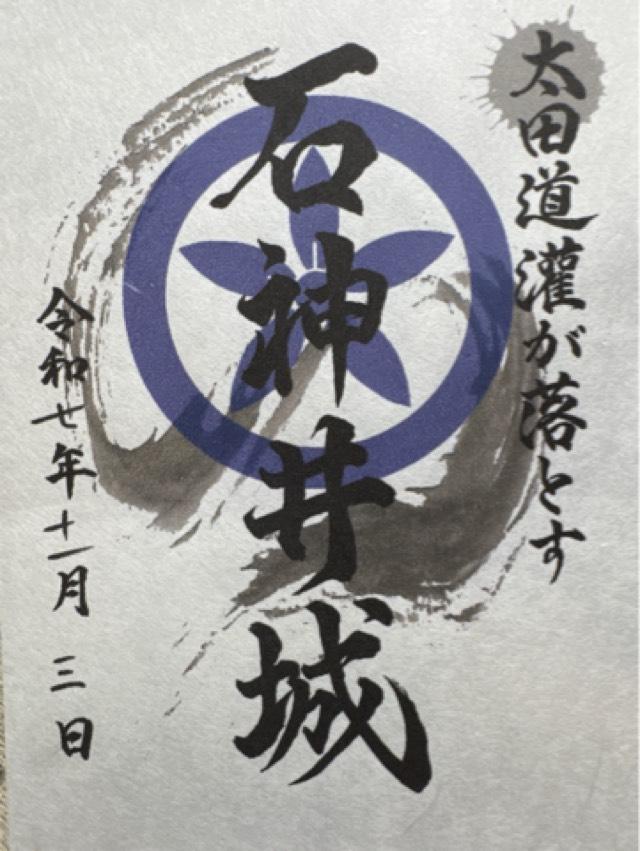 太田道灌が落とす
石神井城
令和七年十一月三日